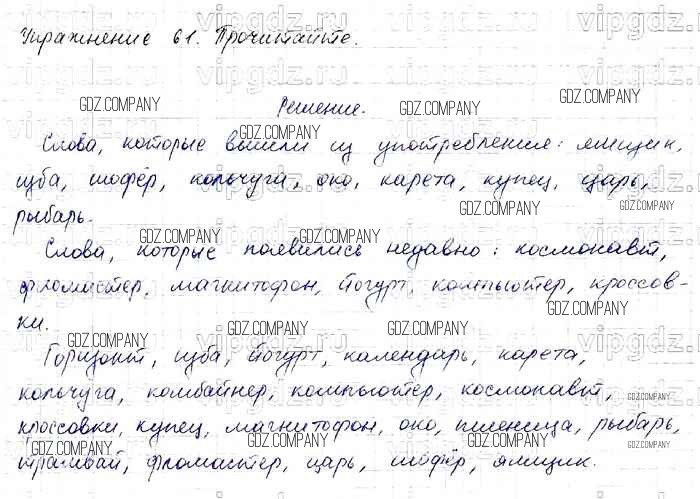 Упражнение 61. Прочитайте.
Решение.
Слова, которые вышли из употребления: ямщик,
изба, шофёр, кольчуга, око, карета, купец, царь,
рыбарь.
Слова, которые появились недавно: космонавт,
фломастер, магнитофон, йогурт, компьютер, кроссов-
ки.
Горизонт, изба, йогурт, календарь, карета,
кольчуга, комбайнер, компьютер, космонавт,
кроссовки, купец, магнитофон, око, пшеница, рыбарь,
трамвай, фломастер, царь, шофёр, ямщик.